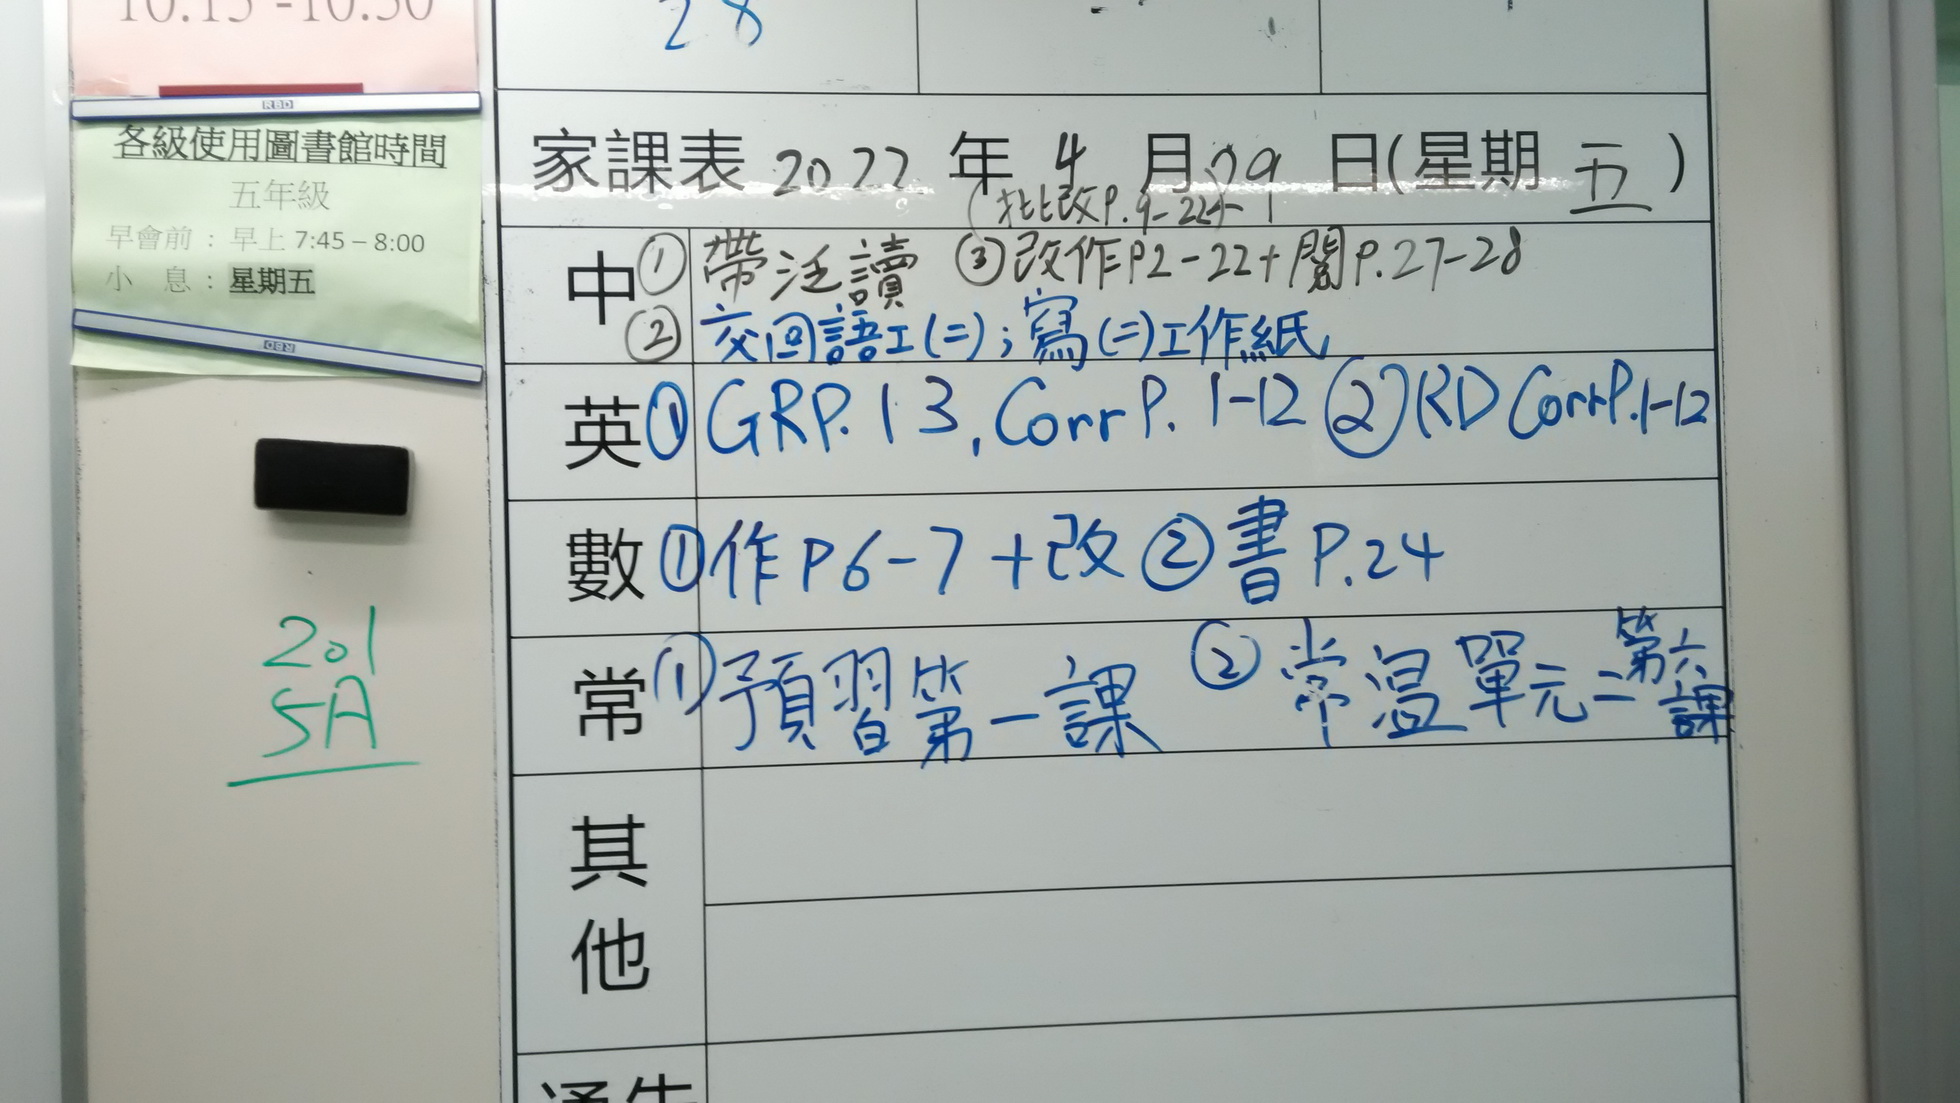 10:15 -10:30
RBD
各級使用圖書館時間
五年級
早會前：早上 7:45 – 8:00
小 息：星期五
RBD
201
5A
28
家課表 2022 年 4 月 29 日(星期 五)
(批改P.9-22)
中 ① 帶泛讀 ③改作P2-22+閱P.27-28
② 交回語工(二)；寫(二)工作紙
英 ① GRP.13, Corr P. 1-12 ② RD Corr P.1-12
數 ① 作P6-7+改 ② 書P.24
常 ① 預習第一課 ② 常温單元二第六課
其他